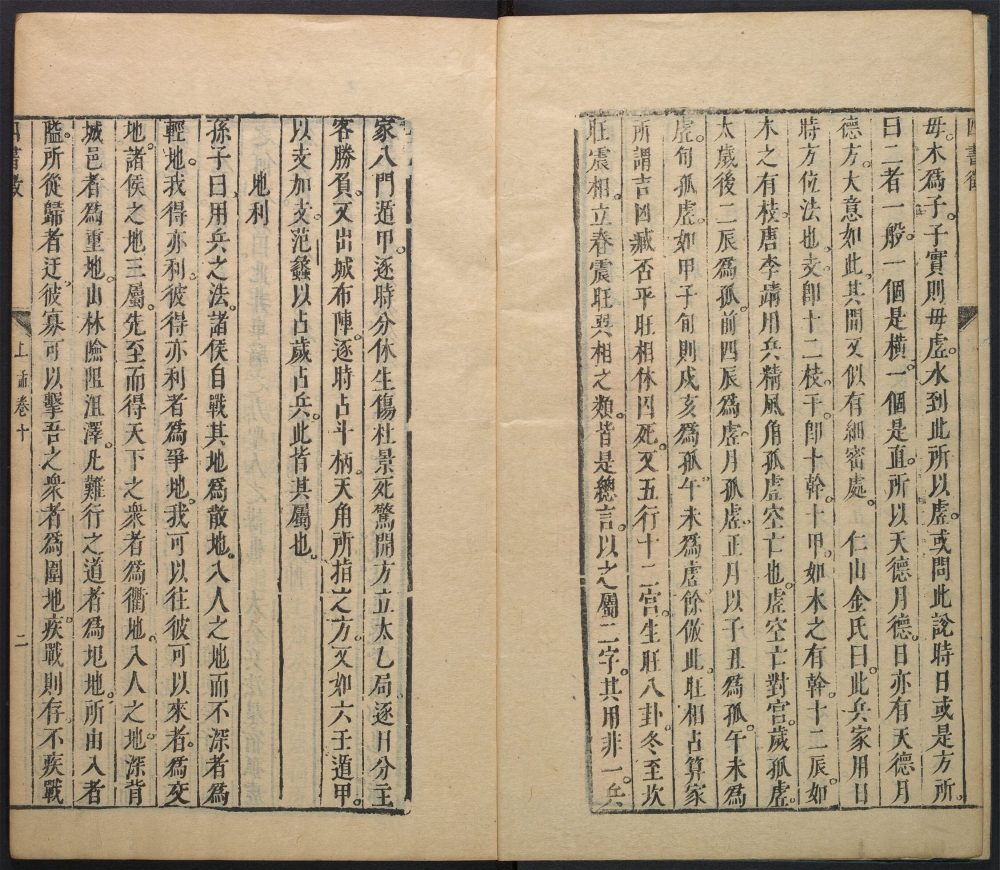 毋。木爲子。子實則毋虛。水到此所以虛。或問此說時日或是方所
曰二者一般。一個是橫。一個是直。所以天德月德。日亦有天德月
德。方大意如此。其間又似有細密處。仁山金氏曰。此兵家用日
時方位法也。支卽十二枝。干卽十幹。十甲如木之有幹。十二辰如
木之有枝。唐李靖用兵精風角孤虛空亡也。虛空亡對宮。歲孤虛。
太歲後二辰爲孤。前四辰爲虛。月孤虛。正月以子丑爲孤。午未爲
虛。旬孤虛。如甲子旬則戌亥爲孤。午未爲虛。餘倣此。旺相占算家
所謂吉凶臧否平。旺相休囚死。又五行十二宮。生旺八卦。冬至坎
旺震相。立春震旺巽相之類。皆是總言。以之屬二字。其用非一。兵
家八門遁甲。逐時分休生傷杜景死驚開方立太乙局。逐日分主
客勝負。又出城布陣。逐時占斗柄。天角所指之方。又如六壬遁甲。
以支加支。范蠡以占歲占兵。此皆其屬也。
地利
孫子曰。用兵之法。諸侯自戰其地爲散地。入人之地而不深者爲
輕地。我得亦利。彼得亦利者爲爭地。我可以往彼可以來者。爲交
地。諸侯之地三屬。先至而得天下之衆者爲衢地。入人之地。深背
城邑者爲重地。山林險阻沮澤。凡難行之道者爲圯地。所由入者
隘。所從歸者迂。彼寡可以擊吾之衆者爲圍地。疾戰則存。不疾戰
上孟卷十
二